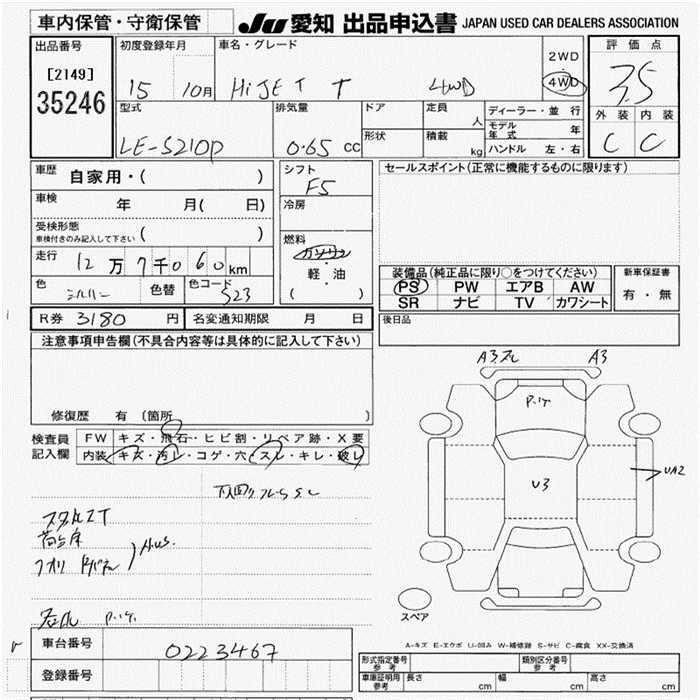 車内保管・守衛保管
JU 愛知 出品申込書 JAPAN USED CAR DEALERS ASSOCIATION
出品番号
[2149]
35246
初度登録年月
15 10月
車名・グレード
HiJET T 4WD
2WD
4WD
評価点
3.5
外装 内装
C C
型式
LE-S210P
排気量
0.65 CC
ドア
形状
定員 人
積載 kg
ディーラー・並行
モデル年式 年
ハンドル 左・右
車歴 自家用・( )
車検 年 月( 日)
受検形態
車検付きのみ記入して下さい ( )
走行 12万7千060km
色 シルバー 色替 色コード S23
シフト
F5
冷房
燃料
ガソリン
・
軽・油
( )
セールスポイント(正常に機能するものに限ります)
装備品(純正品に限り○をつけてください)
PS PW エアB AW
SR ナビ TV カワシート
新車保証書
有・無
R券 3180 円 名変通知期限 月 日
後日品
注意事項申告欄(不具合内容等は具体的に記入して下さい)
修復歴 有 〔箇所
検査員記入欄
FW キズ・飛石・ヒビ割・リペア跡・X要
内装 キズ・汚レ・コゲ・穴・スレ・キレ・破レ
A3 A3
U3
UA2
スペア
A-キズ E-エクボ U-凹み W-補修跡 S-サビ C-腐食 XX-交換済
車台番号 0223467
登録番号
形式指定番号 参考
類別区分番号 参考
車庫証明用 参考 長さ cm 幅 cm 高さ cm